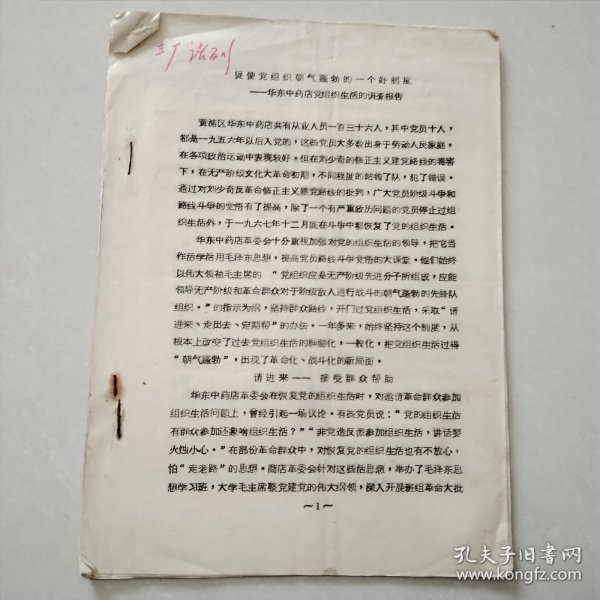 促使党组织朝气蓬勃的一个好制度
——华东中药店党组织生活的调查报告
黄浦区华东中药店共有从业人员一百三十六人，其中党员十人，
都是一九五六年以后入党的，这些党员大多数出身于劳动人民家庭，
在各项政治运动中表现较好。但在刘少奇的修正主义建党路线的毒害
下，在无产阶级文化大革命初期，不同程度的站错了队，犯了错误。
通过对刘少奇反革命修正主义建党路线的批判，广大党员阶级斗争和
路线斗争的觉悟有了提高，除了一个有严重政历问题的党员停止过组
织生活外，于一九六七年十二月底在斗争中都恢复了党的组织生活。
华东中药店革委会十分重视加强对党的组织生活的领导，把它当
作活学活用毛泽东思想，提高党员路线斗争觉悟的大课堂。他们始终
以伟大领袖毛主席的“党组织应是无产阶级先进分子所组成，应能
领导无产阶级和革命群众对于阶级敌人进行战斗的朝气蓬勃的先锋队
组织。”的指示为纲，坚持群众路线，开门过党组织生活，采取“请
进来、走出去、定期帮”的办法。一年多来，始终坚持这个制度，从
根本上改变了过去党组织生活的神秘化，一般化，把党组织生活过得
“朝气蓬勃”，出现了革命化、战斗化的新局面。
请进来——接受群众帮助
华东中药店革委会在恢复党的组织生活时，对邀请革命群众参加
组织生活问题上，曾经引起一场议论。有些党员说：“党的组织生活
有群众参加还象啥组织生活？”“非党造反派参加组织生活，讲话要
火烛小心。”在部份革命群众中，对恢复党的组织生活也有不放心，
怕“走老路”的思想。商店革委会针对这些活思想，举办了毛泽东思
想学习班，大学毛主席整党建党的伟大纲领，深入开展班组革命大批
～1～
孔夫子旧书网
www.kongfz.com